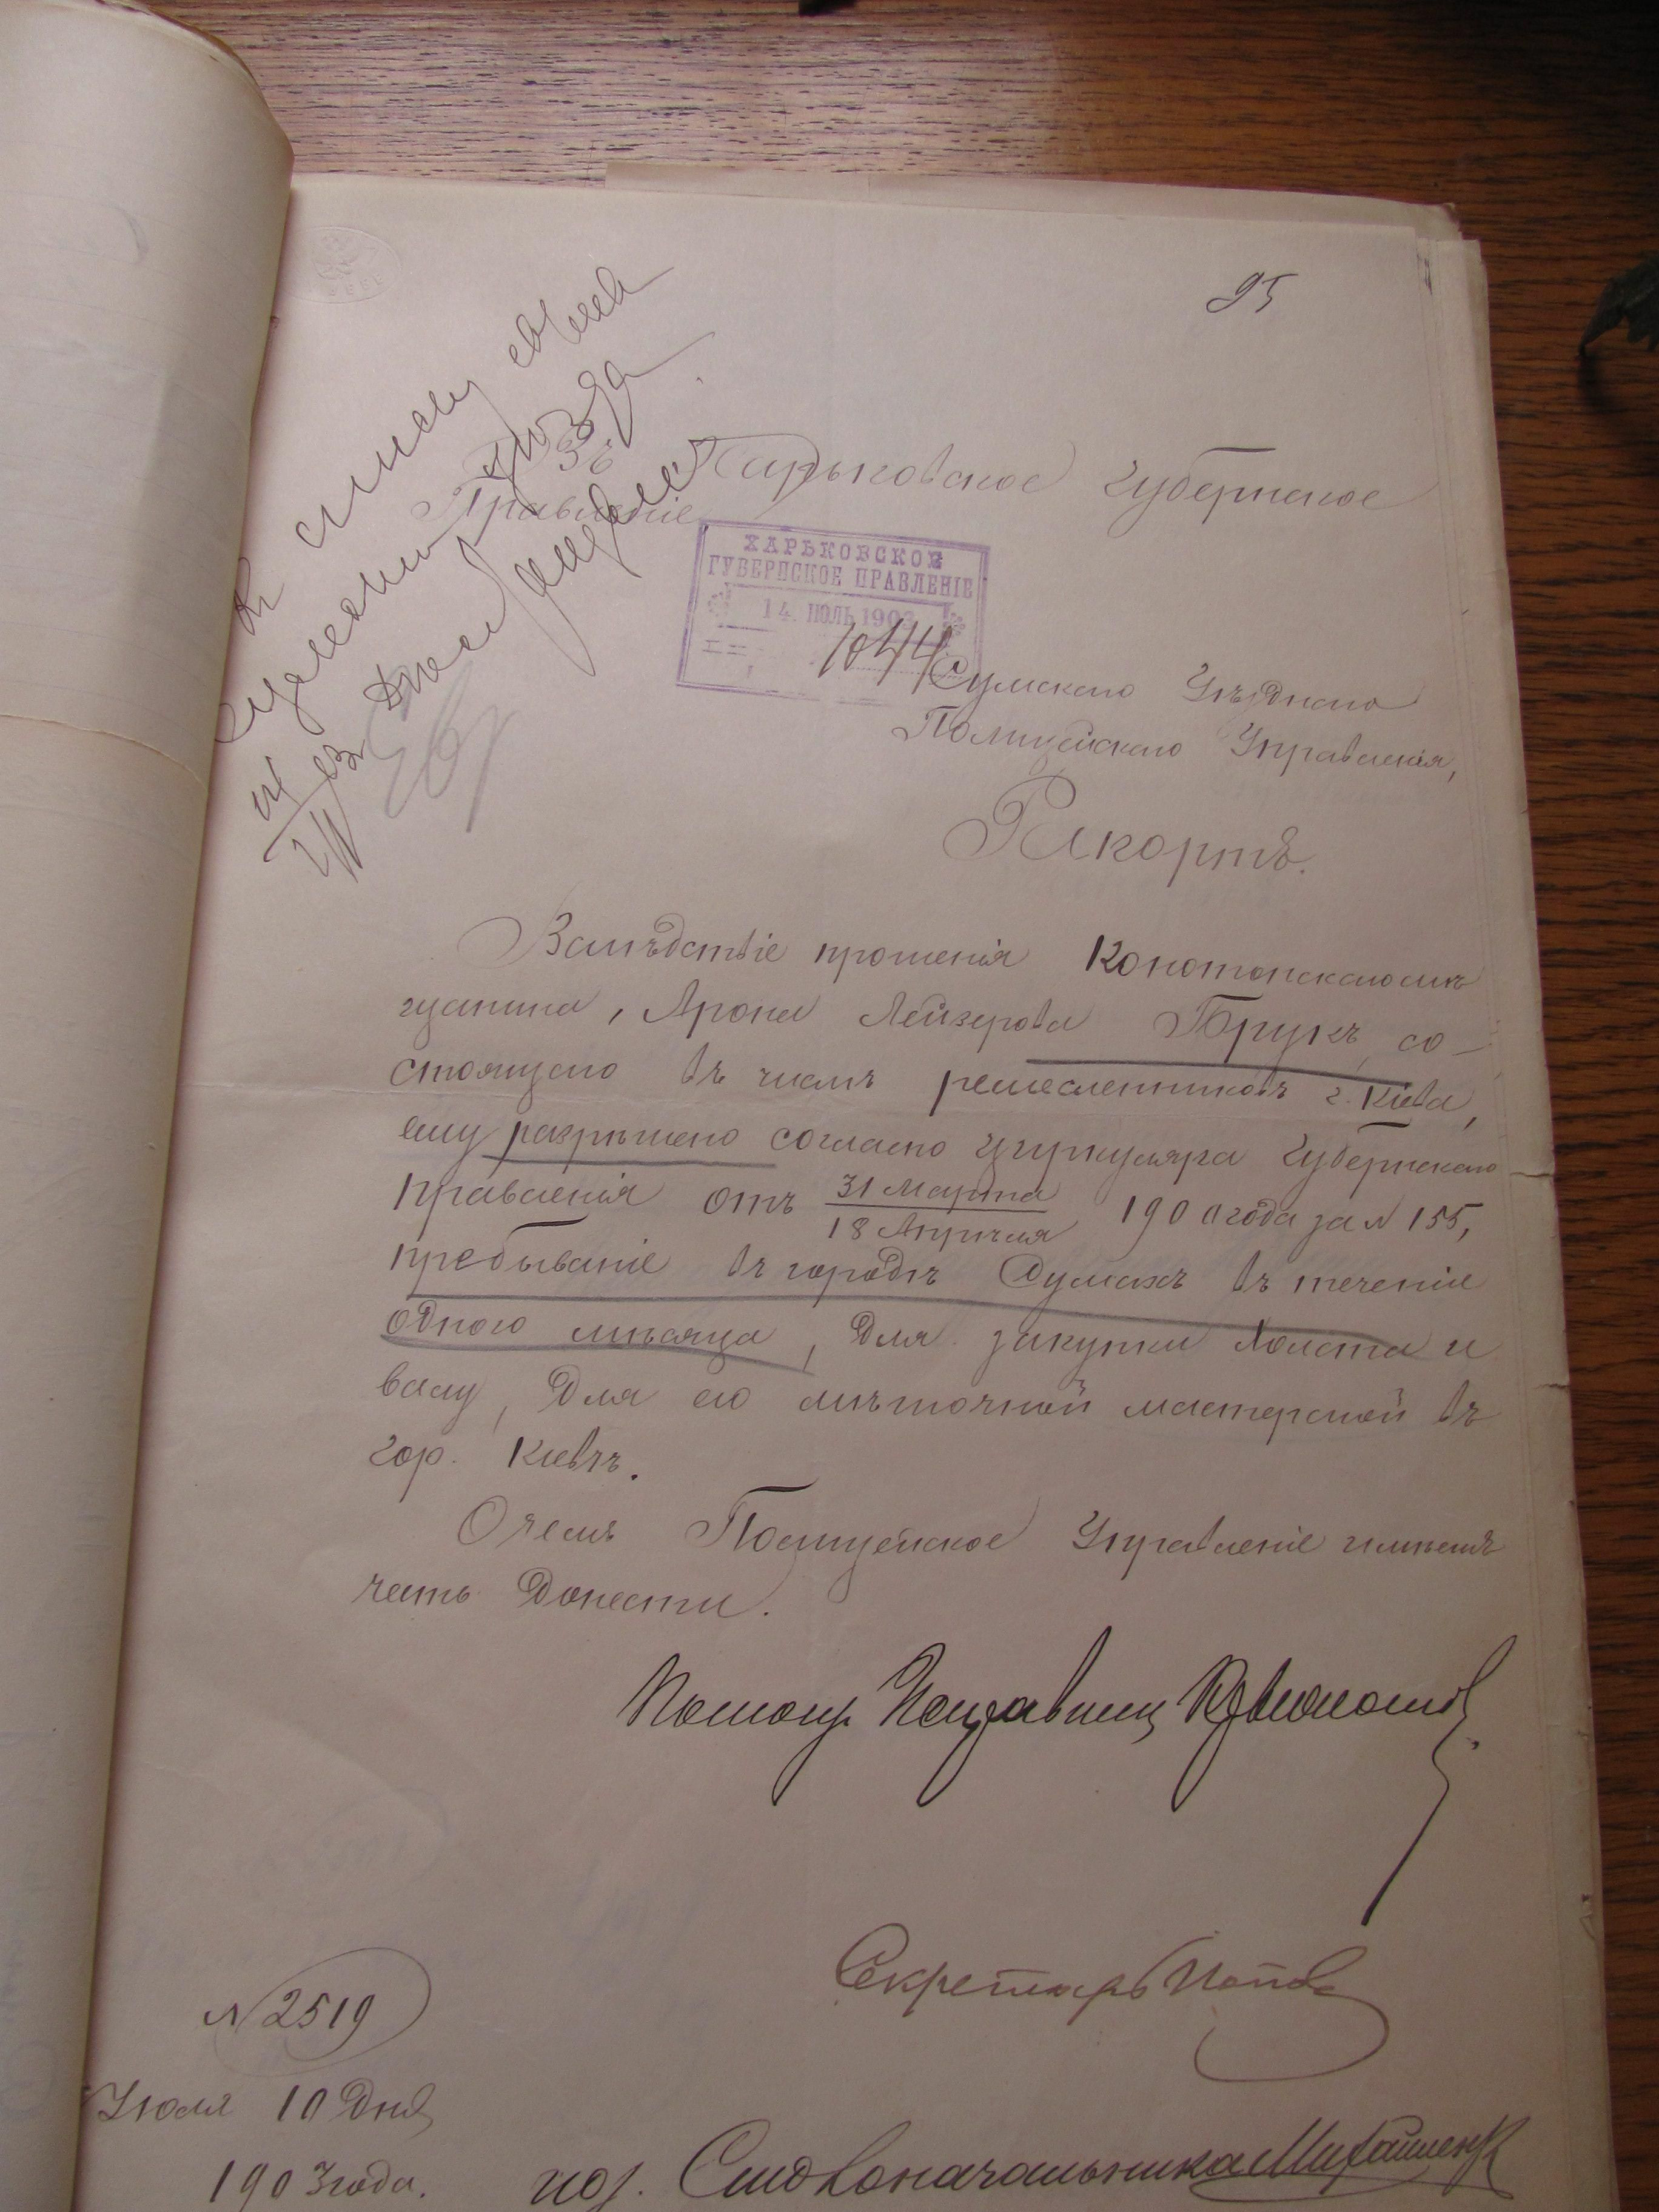 95
Къ списку евреев
Сумскаго уѣзда
Въ Харьковское Губернское
Правленіе
ХАРЬКОВСКОЕ
ГУБЕРНСКОЕ ПРАВЛЕНІЕ
14. ІЮЛЬ 1903
1044
Сумскаго Уѣзднаго
Полицейскаго Управленія,
Рапортъ.
Вслѣдствіе прошенія Конотопскаго мѣ
щанина, Арона Лейзерова Брукъ, со-
стоящаго въ числѣ ремесленниковъ г. Кіева,
ему разрѣшено согласно циркуляра Губернскаго
Правленія отъ 31 Марта / 18 Апрѣля 1900 года за № 155,
пребываніе въ городѣ Сумахъ въ теченіе
одного мѣсяца, для закупки холста и
валу, для его мѣшочной мастерской въ
гор. Кіевѣ.
О чемъ Полицейское Управленіе имѣетъ
честь донести.
Помощ. Исправника
Секретарь Попов
№ 2519
Іюля 10 дня
1903 года.
Столоначальника Михайленко